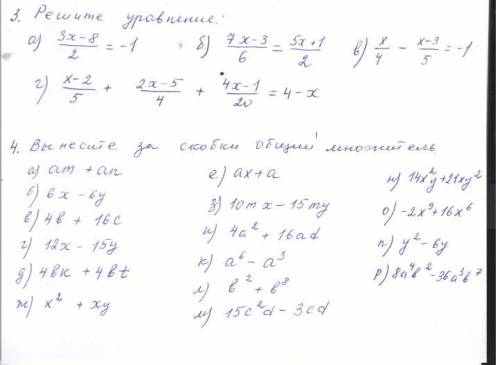 3. Решите уравнение:
а) (3x-8)/2 = -1 б) (7x-3)/6 = (5x+1)/2 в) x/4 - (x-3)/5 = -1
г) (x-2)/5 + (2x-5)/4 + (4x-1)/20 = 4-x
4. Вынесите за скобки общий множитель
а) am + an
б) 6x - 6y
в) 4b + 16c
г) 12x - 15y
д) 4bk + 4bt
ж) x² + xy
е) ax + a
з) 10mx - 15my
и) 4a² + 16ad
к) a⁶ - a³
л) b² + b⁸
м) 15c²d - 3cd
н) 14x²y + 21xy²
о) -2x⁹ + 16x⁶
п) y² - 6y
р) 8a⁴b² - 36a³b⁷